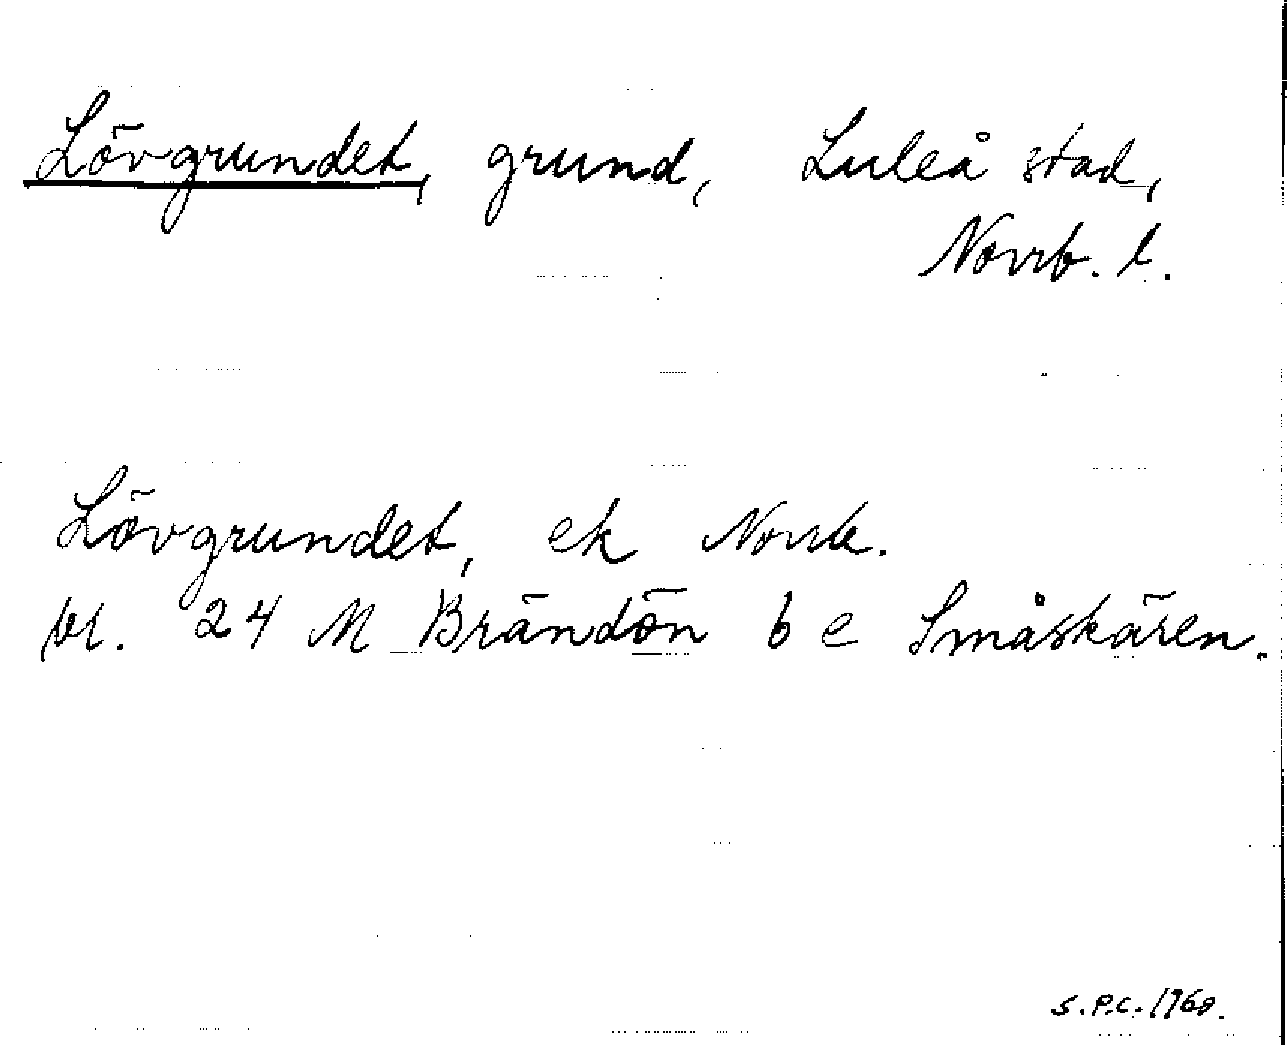 Lövgrundet, grund, Luleå stad,
Norrb. l.
Lövgrundet, ek Norrb.
bl. 24 M Brändön 6 e Småskären.
S.P.C. 1968.